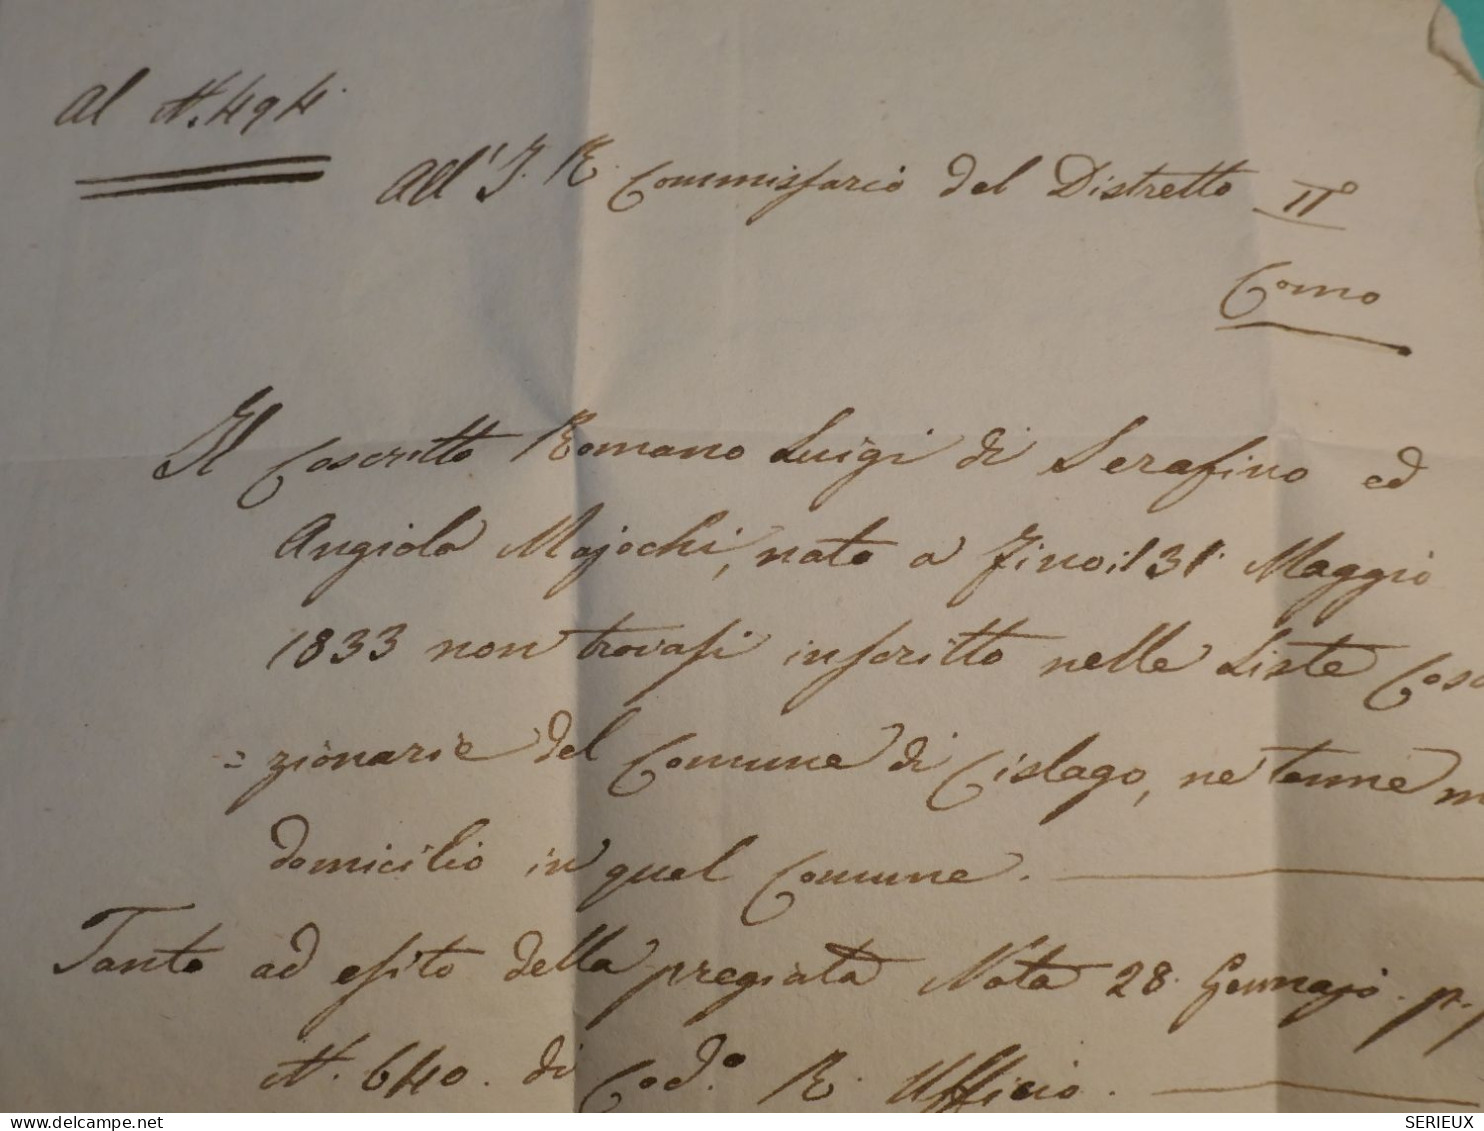 al N. 494.
All' I. R. Commissario del Distretto II°
Como
Il Coscritto Romano Luigi di Serafino ed
Angiola Majochi, nato a Fino il 31. Maggio
1833 non trovasi inscritto nelle Liste Cosc
= zionarie del Comune di Cislago, ne tenne m
domicilio in quel Comune.
Tanto ad esito della pregiata Nota 28. Gennajo. p. p
N. 640. di Cod.° R. Ufficio.
delcampe.net
SERIEUX